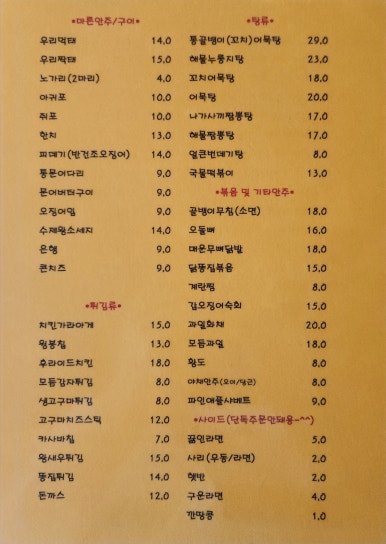 *마른안주/구이*
우리먹태 14.0
우리짝태 15.0
노가리(2마리) 4.0
아귀포 10.0
쥐포 10.0
한치 13.0
피데기(반건조오징어) 14.0
통문어다리 9.0
문어버터구이 9.0
오징어입 9.0
수제왕소세지 14.0
은행 9.0
콘치즈 9.0
*튀김류*
치킨가라아게 15.0
윙봉칩 13.0
후라이드치킨 18.0
모듬감자튀김 8.0
생고구마튀김 8.0
고구마치즈스틱 12.0
카사바칩 7.0
왕새우튀김 15.0
똥집튀김 14.0
돈까스 12.0
*탕류*
통골뱅이(꼬치)어묵탕 29.0
해물누룽지탕 23.0
꼬치어묵탕 18.0
어묵탕 20.0
나가사끼짬뽕탕 17.0
해물짬뽕탕 17.0
얼큰번데기탕 8.0
국물떡볶이 13.0
*볶음 및 기타안주*
골뱅이무침(소면) 18.0
오돌뼈 16.0
매운무뼈닭발 18.0
닭똥집볶음 15.0
계란찜 8.0
갑오징어숙회 15.0
과일화채 20.0
모듬과일 18.0
황도 8.0
야채안주(오이/당근) 8.0
파인애플샤베트 9.0
*사이드(단독주문안돼용~^^)
끓인라면 5.0
사리(우동/라면) 2.0
햇반 2.0
구운라면 4.0
깐땅콩 1.0